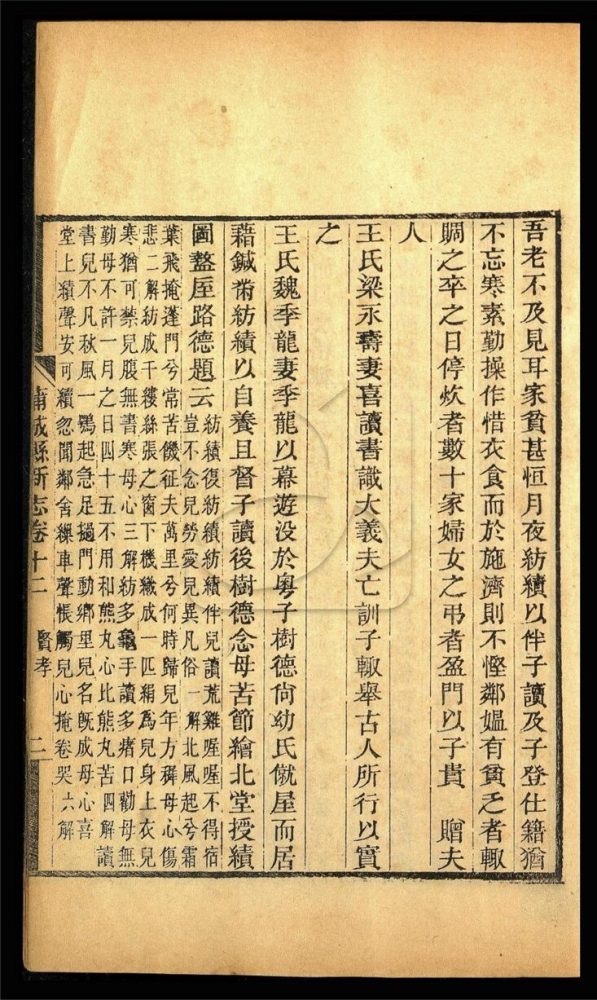 吾老不及見耳家貧甚恒月夜紡績以伴子讀及子登仕籍猶
不忘寒素勤操作惜衣食而於施濟則不慳鄰媼有貧乏者輙
賙之卒之日停炊者數十家婦女之弔者盈門以子貴 贈夫
人
王氏梁永壽妻喜讀書識大義夫亡訓子輙舉古人所行以實
之
王氏魏季龍妻季龍以幕遊没於粵子樹德尙幼氏僦屋而居
藉鍼黹紡績以自養且督子讀後樹德念母苦節繪北堂授績
圖盩厔路德題云紡績復紡績紡績伴兒讀荒雞喔喔不得宿
豈不念兒勞愛兒異凡俗一解北風起兮霜
葉飛掩蓬門兮常苦饑征夫萬里兮何時歸兒年方稱母心傷
悲二解紡成千縷絲張之窗下機織成一匹絹爲兒身上衣兒
寒猶可禁兒腹無書寒母心三解紡多龜手讀多瘏口勸母無
勤母不許一月之日四十五不用和熊丸心比熊丸苦四解讀
書兒不凡秋風一鶚起急足撾門動鄉里兒名旣成母心喜
堂上績聲安可續忽聞鄰舍繅車聲悵觸兒心掩卷哭 六解
蒲城縣新志卷十二 賢孝 二